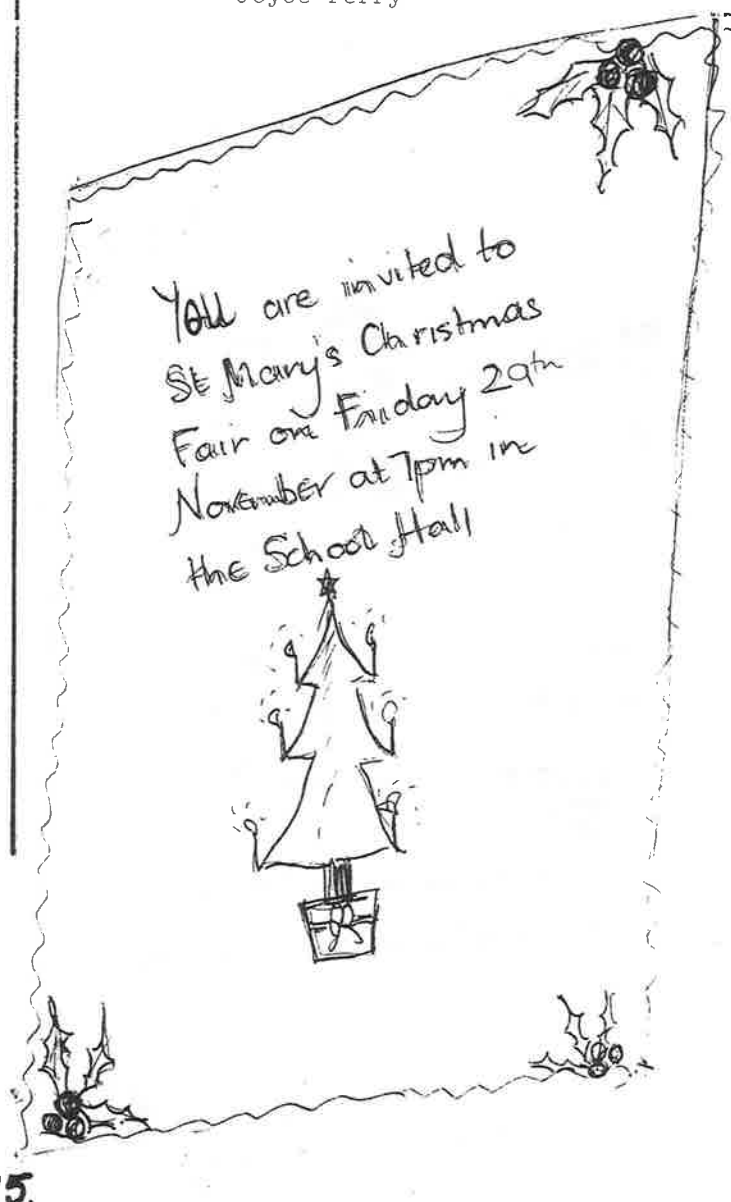 Joyce Perry
You are invited to
St Mary's Christmas
Fair on Friday 29th
November at 7pm in
the School Hall
5.